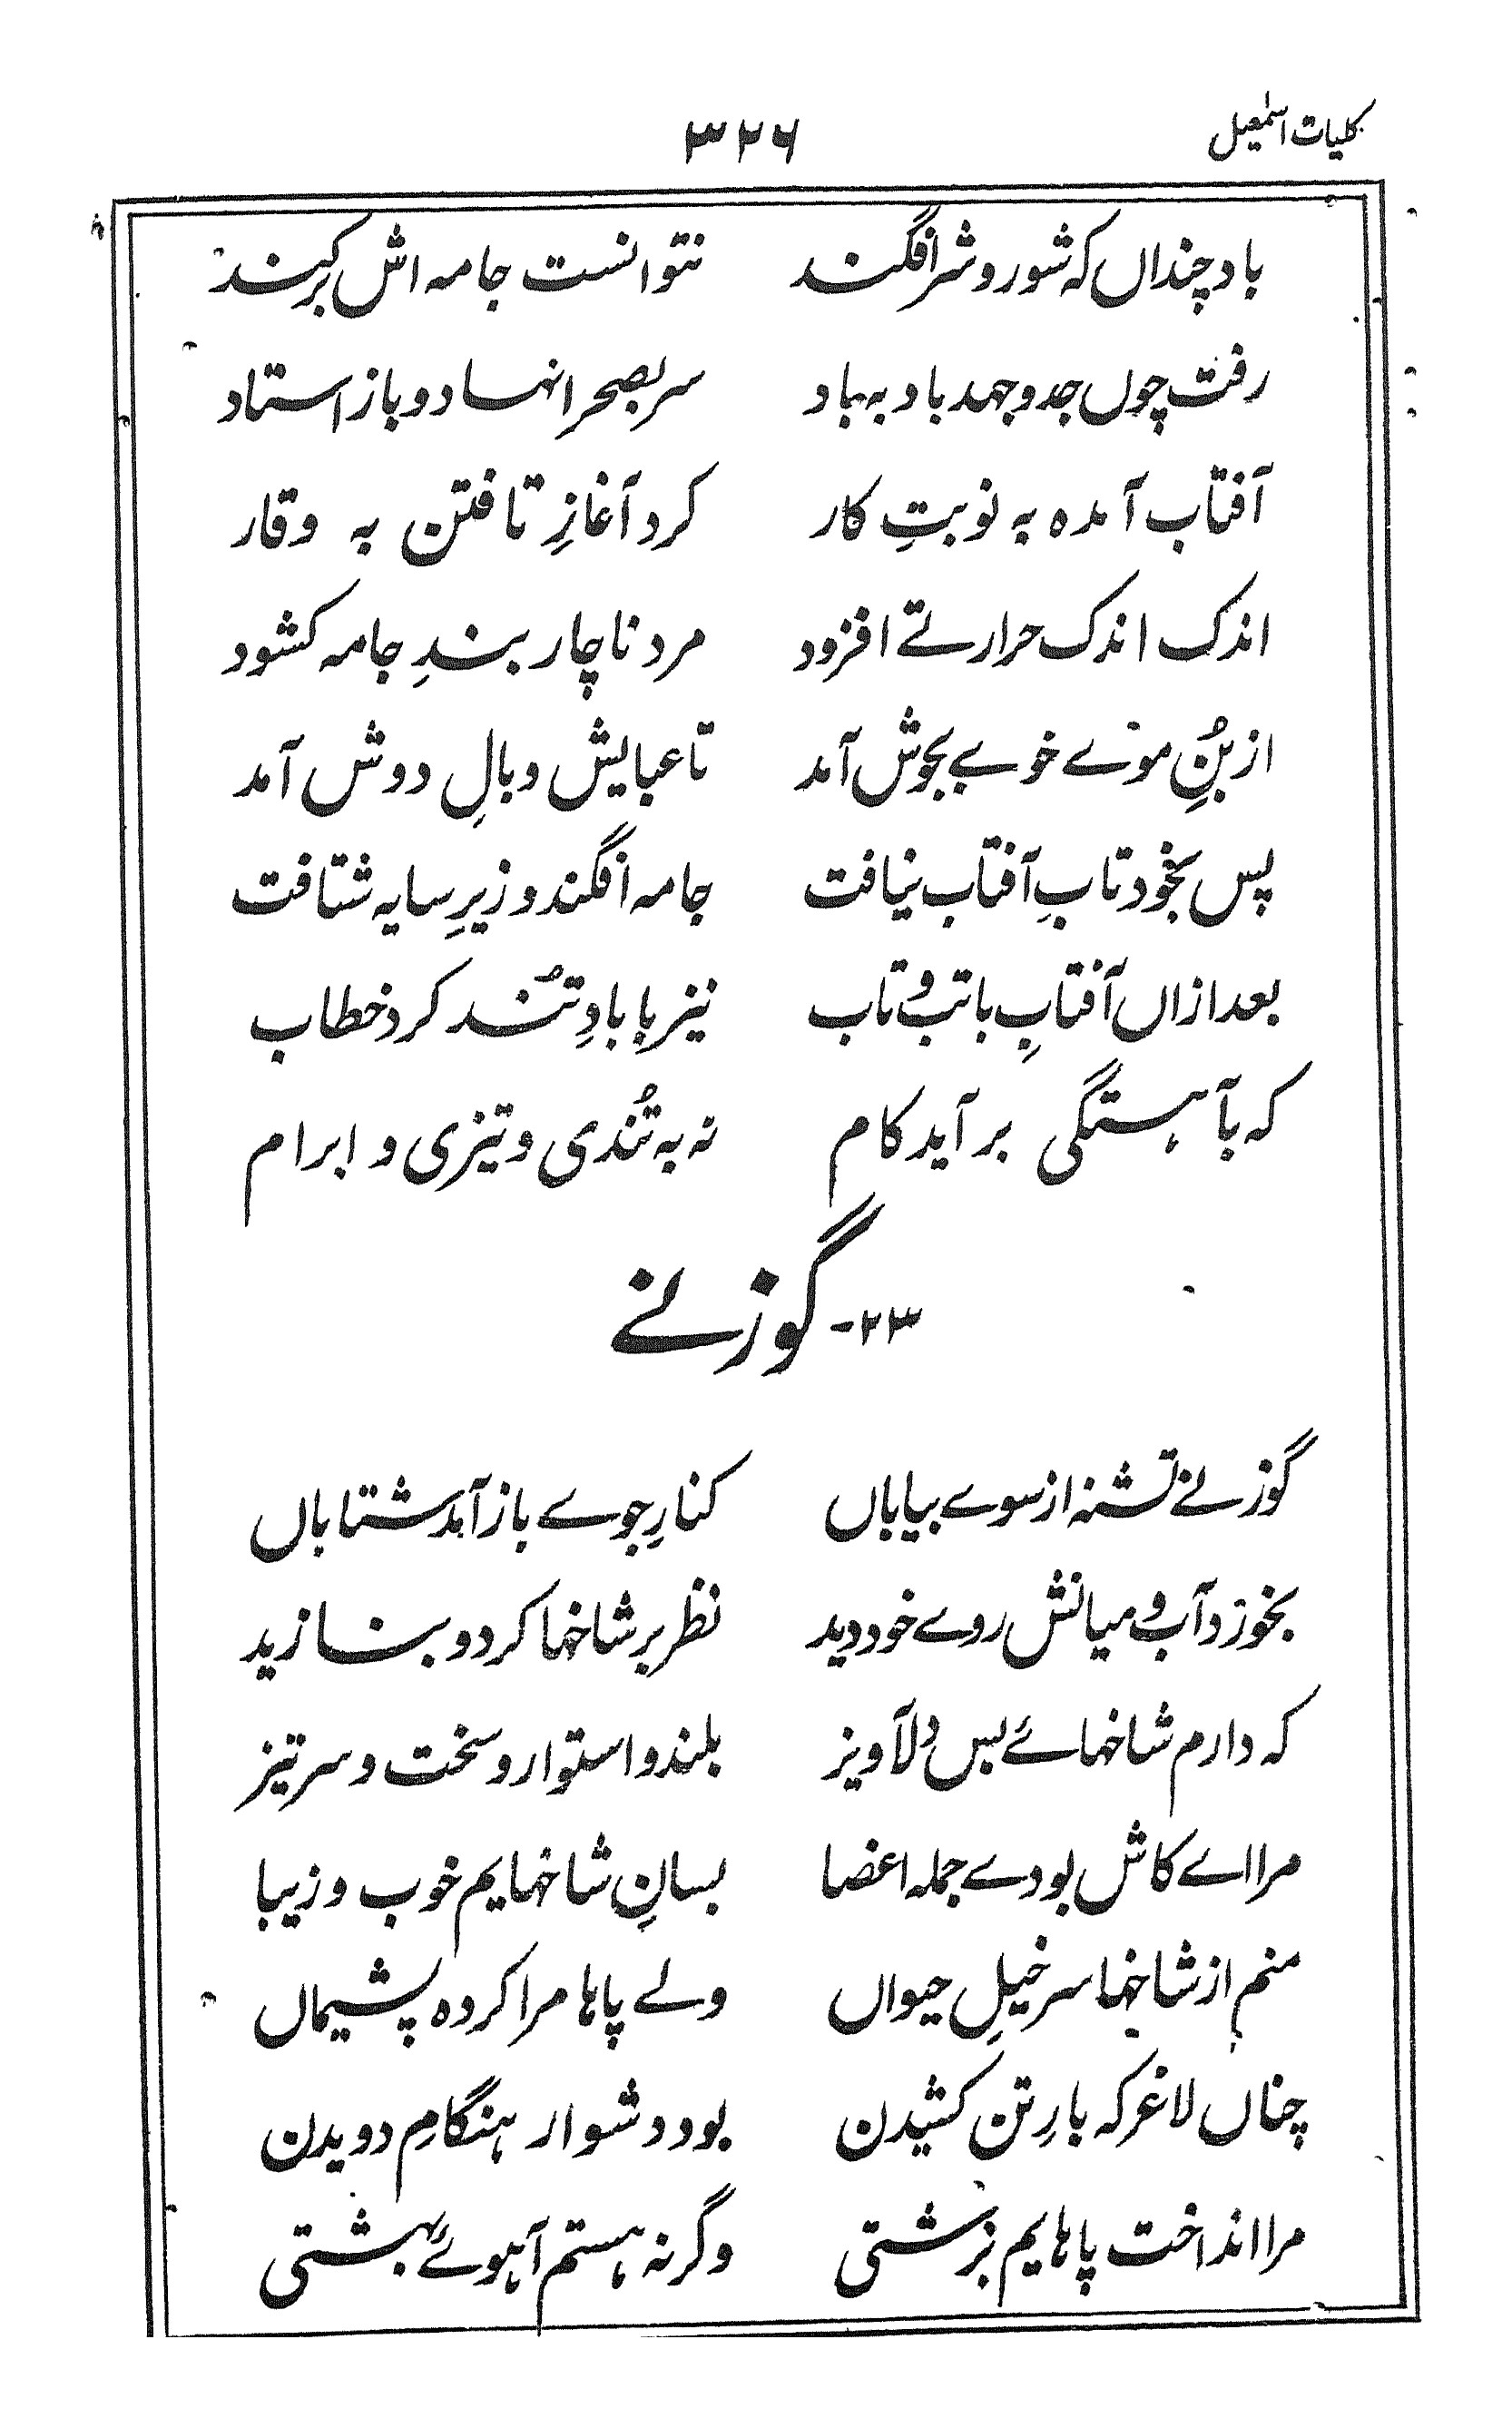 کلیات اسمٰعیل ۳۲۶
باد چنداں کہ شور و شر افگند نتوانست جامہ اش بر کند
رفت چوں جد و جہد باد بہ باد سر بصحرا نہاد و باز استاد
آفتاب آمدہ بہ نوبتِ کار کرد آغازِ تافتن بہ وقار
اندک اندک حرارتے افزود مرد ناچار بندِ جامہ کشود
از بُنِ موے خوے بجوش آمد تا عبایش وبالِ دوش آمد
پس بخود تابِ آفتاب نیافت جامہ افگند و زیرِ سایہ شتافت
بعد ازاں آفتابِ با تب و تاب نیز با بادِ تُند کرد خطاب
کہ بآہستگی بر آید کام نہ بہ تُندی و تیزی و ابرام
۲۳- گوزنے
گوزنے تشنہ از سوے بیاباں کنارِ جوے باز آمد شتاباں
بخورد آب و میانش روے خود دید نظر بر شاخہا کرد و بنازید
کہ دارم شاخہائے بس دلآویز بلند و استوار و سخت و سر تیز
مرا اے کاش بودے جملہ اعضا بسانِ شاخہایم خوب و زیبا
منم از شاخہا سر خیلِ حیواں ولے پاہا مرا کردہ پشیماں
چناں لاغر کہ بارِ تن کشیدن بود دشوار ہنگامِ دویدن
مرا انداخت پاہایم بزشتی وگرنہ ہستم آہوئے بہشتی